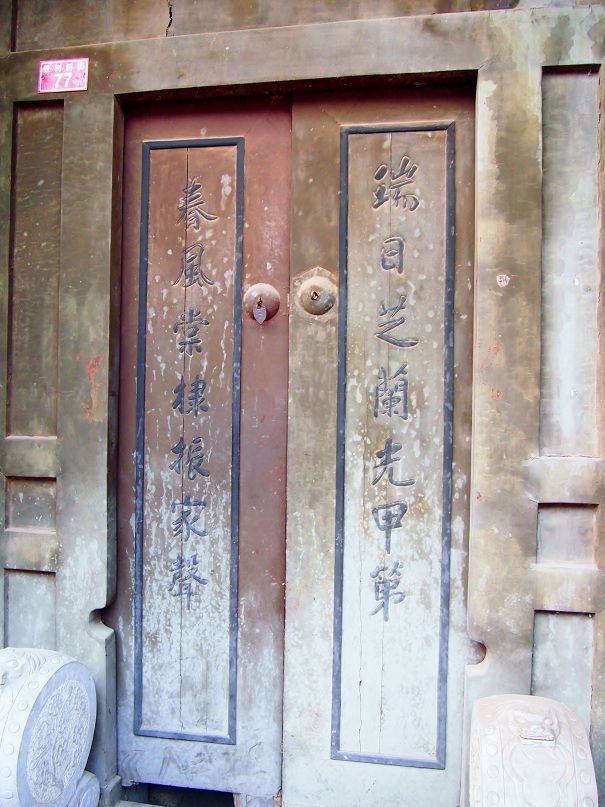 77
瑞日芝蘭光甲第
春風棠棣振家聲